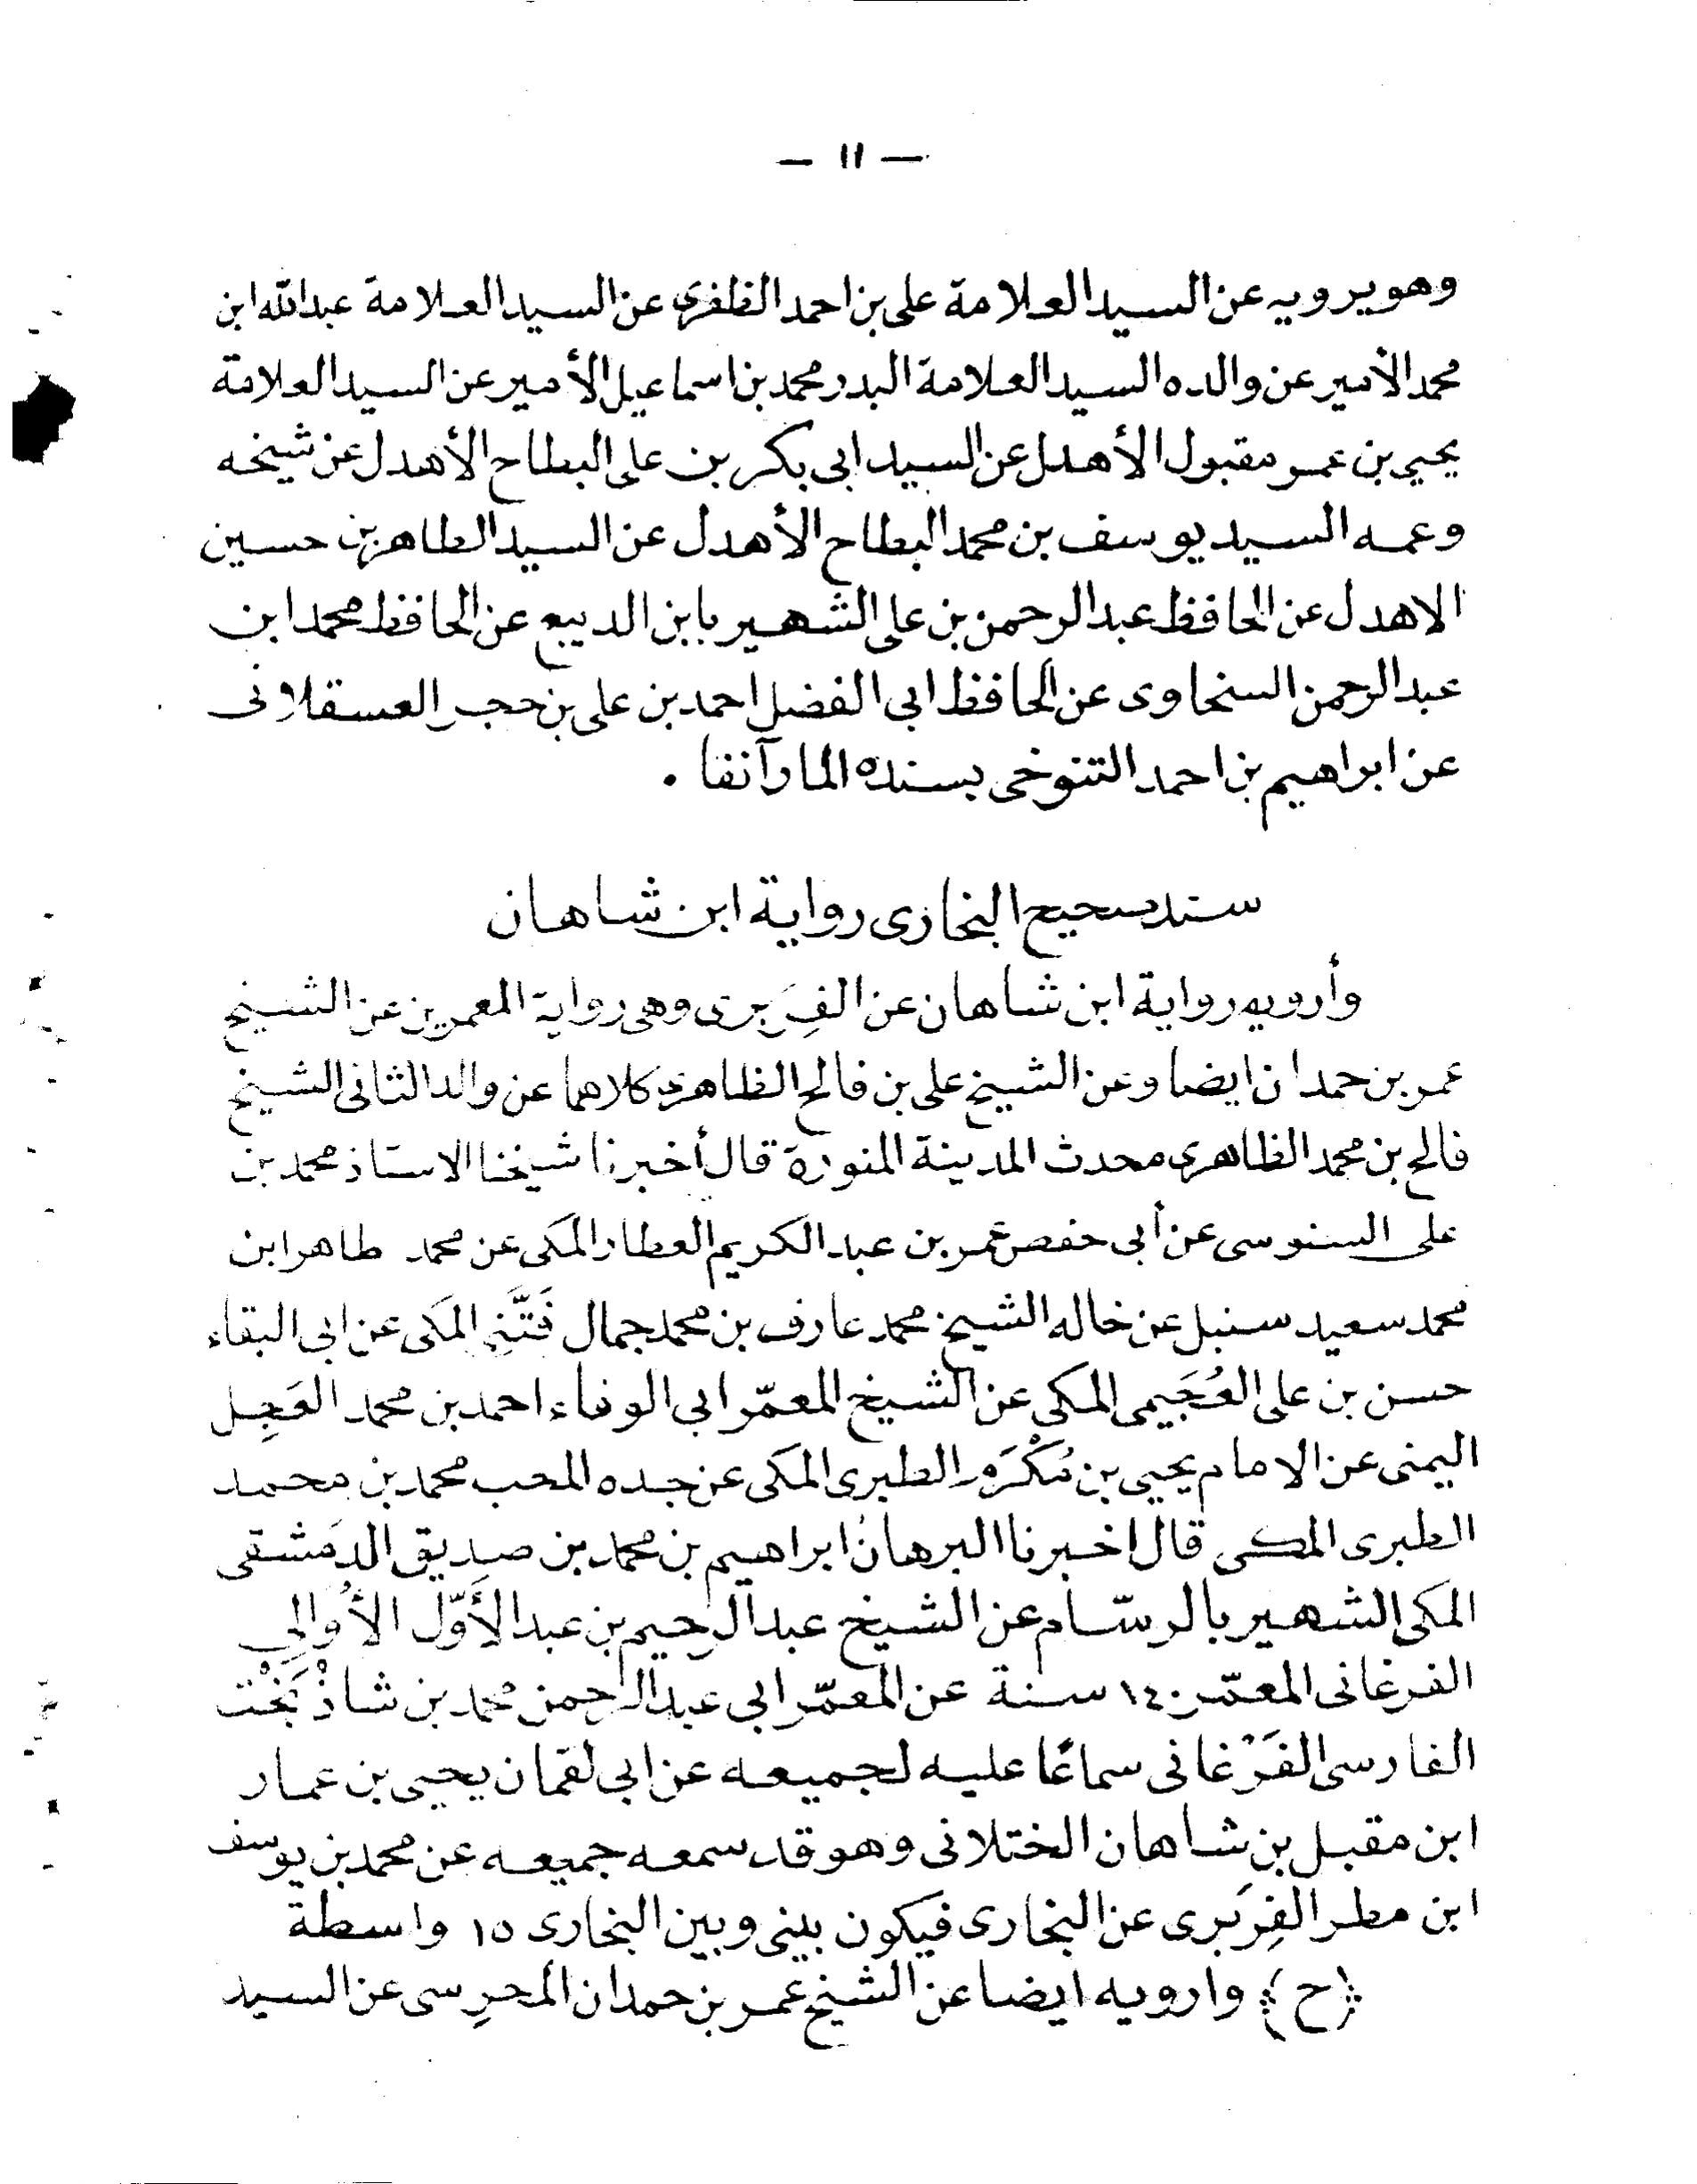 — ١١ —
وهو يرويه عن السيد العلامة على بن احمد الظفرى عن السيد العلامة عبدالله ابن
محمد الأمير عن والده السيد العلامة البدر محمد بن اسماعيل الأمير عن السيد العلامة
يحيي بن عمر مقبول الأهدل عن السيد ابى بكر بن على البطاح الأهدل عن شيخه
وعمه السيد يوسف بن محمد البطاح الأهدل عن السيد الطاهر بن حسين
الاهدل عن الحافظ عبدالرحمن بن على الشهير بابن الديبع عن الحافظ محمد ابن
عبدالرحمن السخاوى عن الحافظ ابى الفضل احمد بن على بن حجر العسقلانى
عن ابراهيم بن احمد التنوخى بسنده المار آنفا .
سند صحيح البخارى رواية ابن شاهان
وأرويه رواية ابن شاهان عن الفِرَبرى وهى رواية المعمرين عن الشيخ
عمر بن حمدان ايضا وعن الشيخ على بن فالح الظاهرى كلاهما عن والد الثانى الشيخ
فالح بن محمد الظاهرى محدث المدينة المنورة قال أخبرنا شيخنا الاستاذ محمد بن
على السنوسى عن أبى حفص عمر بن عبد الكريم العطار المكى عن محمد طاهر ابن
محمد سعيد سنبل عن خاله الشيخ محمد عارف بن محمد جمال فَتَّنِى المكى عن ابى البقاء
حسن بن على العُجَيمى المكى عن الشيخ المعمّر ابى الوفاء احمد بن محمد العَجِل
اليمنى عن الامام يحيى بن مُكْرَم الطبرى المكى عن جده المحب محمد بن محمد
الطبرى المكى قال اخبرنا البرهان ابراهيم بن محمد بن صديق الدمَشقى
المكى الشهير بالرسّام عن الشيخ عبدالرحيم بن عبدالأَوّل الأُوالِى
الفرغانى المعمّر ١٤٠ سنة عن المعمّر ابى عبدالرحمن محمد بن شاذْ بَخْت
الفارسى الفَرْغانى سماعًا عليه لجميعه عن ابى لقمان يحيى بن عمار
ابن مقبل بن شاهان الختلانى وهو قد سمعه جميعه عن محمد بن يوسف
ابن مطر الفِرَبرى عن البخارى فيكون بينى وبين البخارى ١٥ واسطة
﴿ح﴾ وارويه ايضا عن الشيخ عمر بن حمدان المحرِسى عن السيد